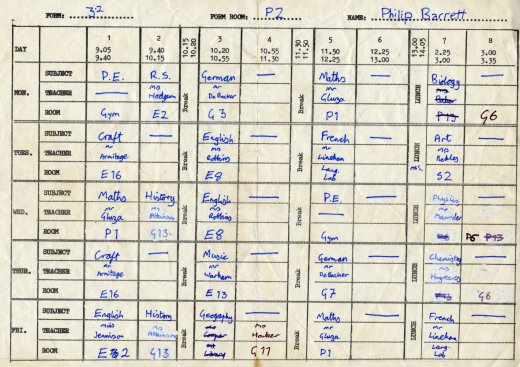 FORM: 3-2 FORM ROOM: P2 NAME: Philip Barrett
DAY 1 2 3 4 5 6 7 8
9.05 9.40 10.15 10.20 10.55 11.30 11.50 12.25 13.00 2.25 3.00
9.40 10.15 10.20 10.55 11.30 11.50 12.25 13.00 14.05 3.00 3.35
SUBJECT P.E. R.S. German — Maths — Biology —
MON. TEACHER — Hodgem Break Mr DeBucker Break Mr Gluza LUNCH
ROOM Gym E2 G3 P1 P13 G6
SUBJECT Craft — English — French — Art —
TUES. TEACHER Mr Armitage Break Mrs Robbins Break Mr Linehan LUNCH Beckles
ROOM E16 E8 Lang. Lab S2
SUBJECT Maths History English — P.E. — Physics —
WED. TEACHER Mr Gluza Break Mrs Robbins Break — LUNCH Mr Maunder
ROOM P1 G13 E8 Gym P6 P13
SUBJECT Craft — Music — German — Chemistry —
THUR. TEACHER Mr Armitage Break Mr Warham Break Mr DeBucker LUNCH
ROOM E16 E13 G7 G6
SUBJECT English History Geography — Maths — French —
FRI. TEACHER Miss Jewison Break Mr Cooper Break Mr Gluza LUNCH Mr Linehan
ROOM E 2 G13 Library G11 P1 Lang. Lab